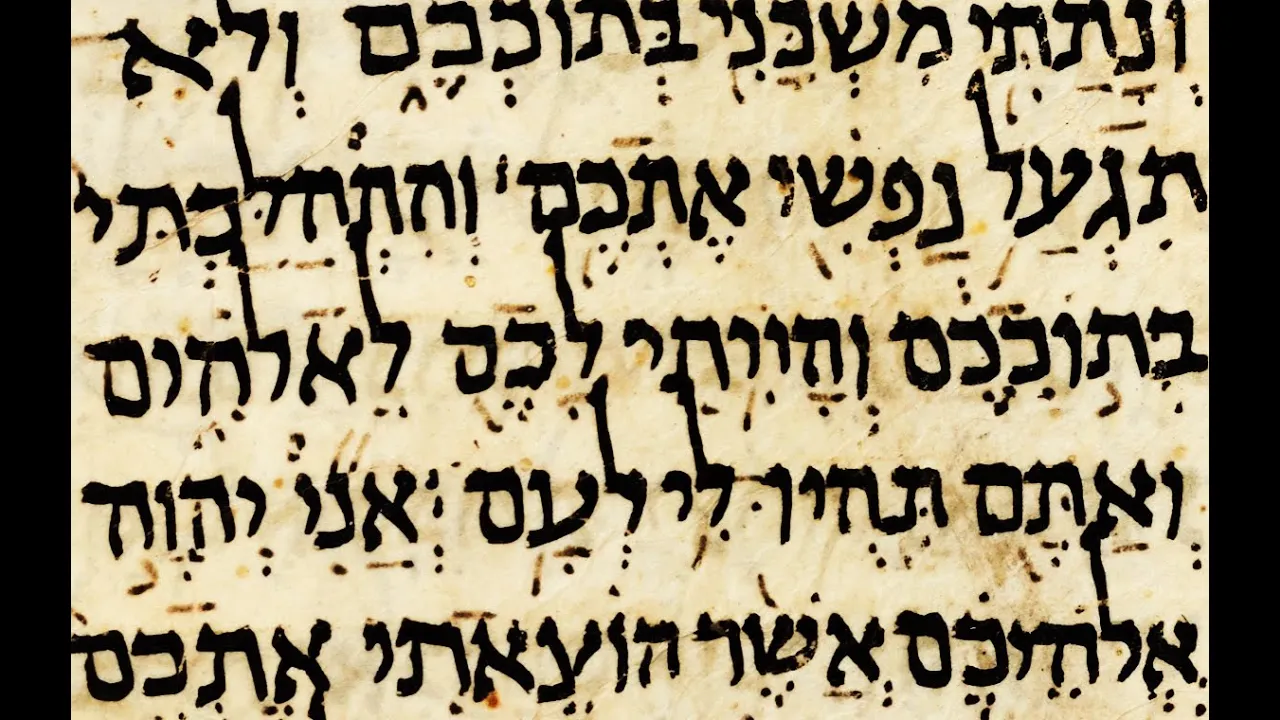 וְנָתַתִּי מִשְׁכָּנִי בְּתוֹכְכֶם וְלֹא
תִגְעַל נַפְשִׁי אֶתְכֶם׃ וְהִתְהַלַּכְתִּי
בְּתוֹכְכֶם וְהָיִיתִי לָכֶם לֵאלֹהִים
וְאַתֶּם תִּהְיוּ לִי לְעָם׃ אֲנִי יְהוָה
אֱלֹהֵיכֶם אֲשֶׁר הוֹצֵאתִי אֶתְכֶם